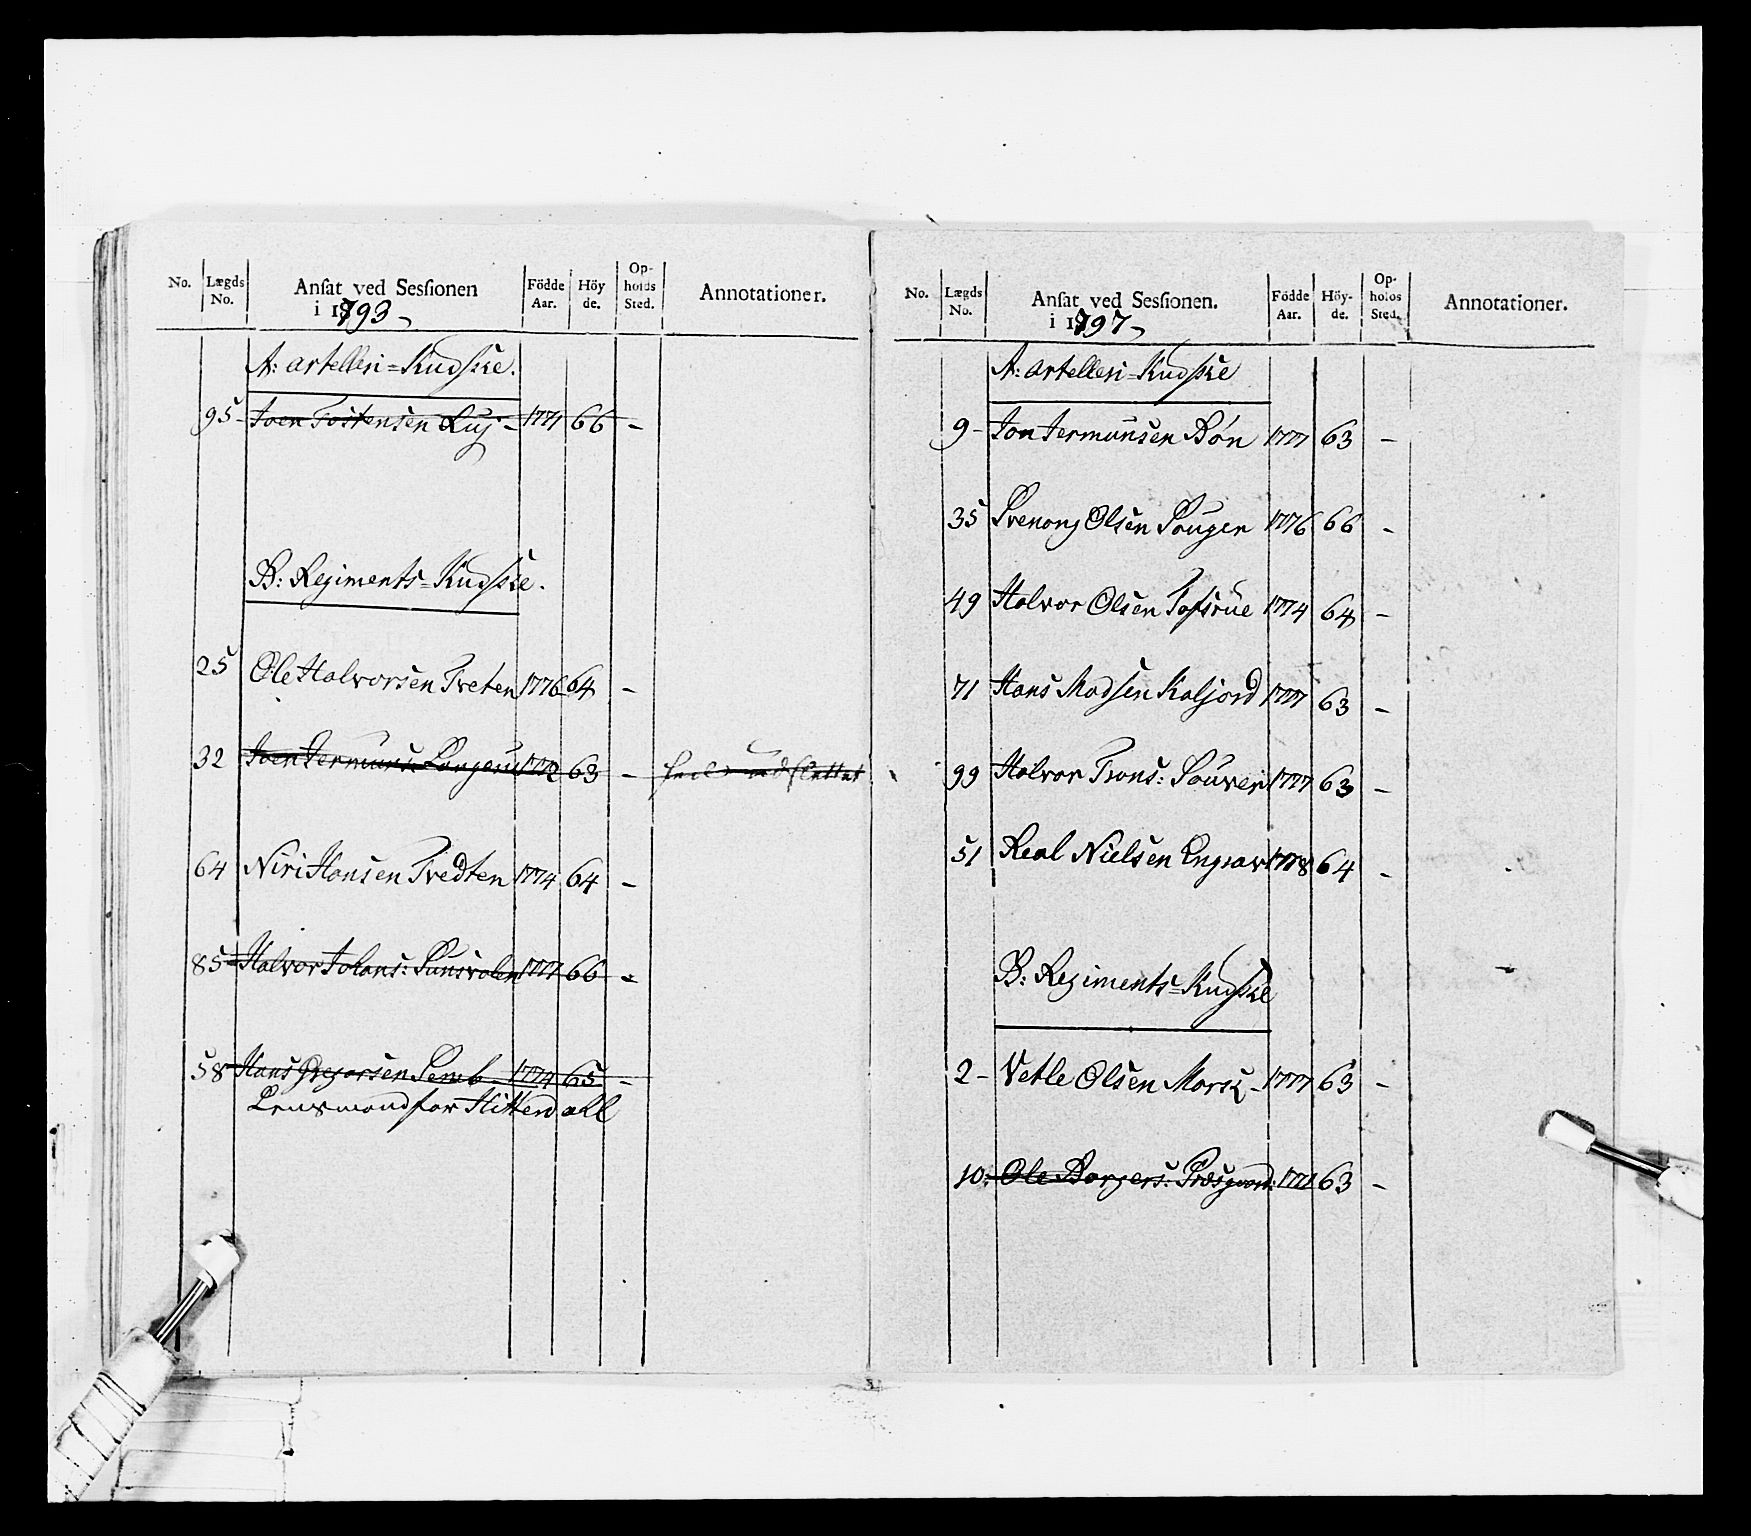 No. Lægds No. Ansat ved Sessionen i 1793 Födde Aar. Höyde. Opholds Sted. Annotationer.
A: artelleri=Kudske.
95 - Joen Tostensen Luj - 1771 66 -
B: Regiments=Kudske.
25 Ole Halvorsen Treten 1776 64 -
32 Joen Jermunds 1772 63 -
64 Niri Hansen Tredten 1774 64 -
85 Halvor Johans: 1777 66 -
58 Hans Gregorsen Semb 1774 65 -
Lensmand for Hitterdall
No. Lægds No. Ansat ved Sessionen. i 1797 Födde Aar. Höyde. Opholos Sted. Annotationer.
A: artelleri=Kudske
9 - Jon Jermunsen Bón 1777 63 -
35 Svenong Olsen 1776 66 -
49 Halvor Olsen Tofsrue 1774 64 -
71 Hans Madsen Kaljord 1777 63 -
99 Halvor Trons: 1777 63 -
51 Real Nielsen Engrav 1778 64 -
B: Regiments=Kudske
2 - Vetle Olsen Morsk - 1777 63 -
10: Ole Borgers: 1771 63 -